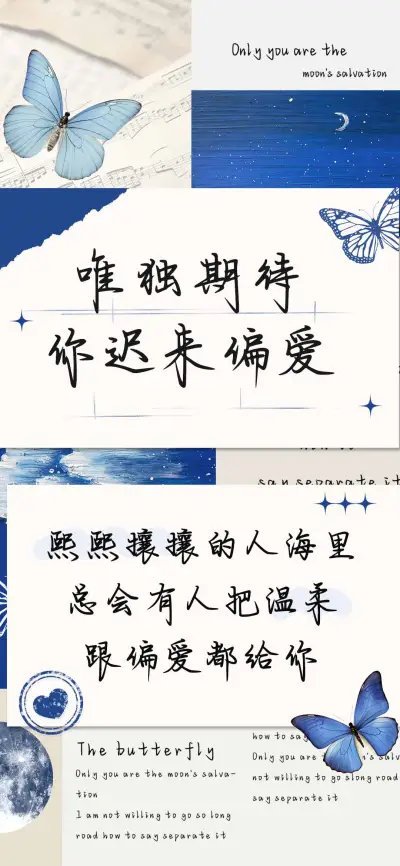 Only you are the
moon's salvation
唯独期待
你迟来偏爱
say separate it
熙熙攘攘的人海里
总会有人把温柔
跟偏爱都给你
The butterfly
Only you are the moon's salva-
tion
I am not willing to go so long
road how to say separate it
how to say
Only you are the moon's salva-
not willing to go slong road
say separate it